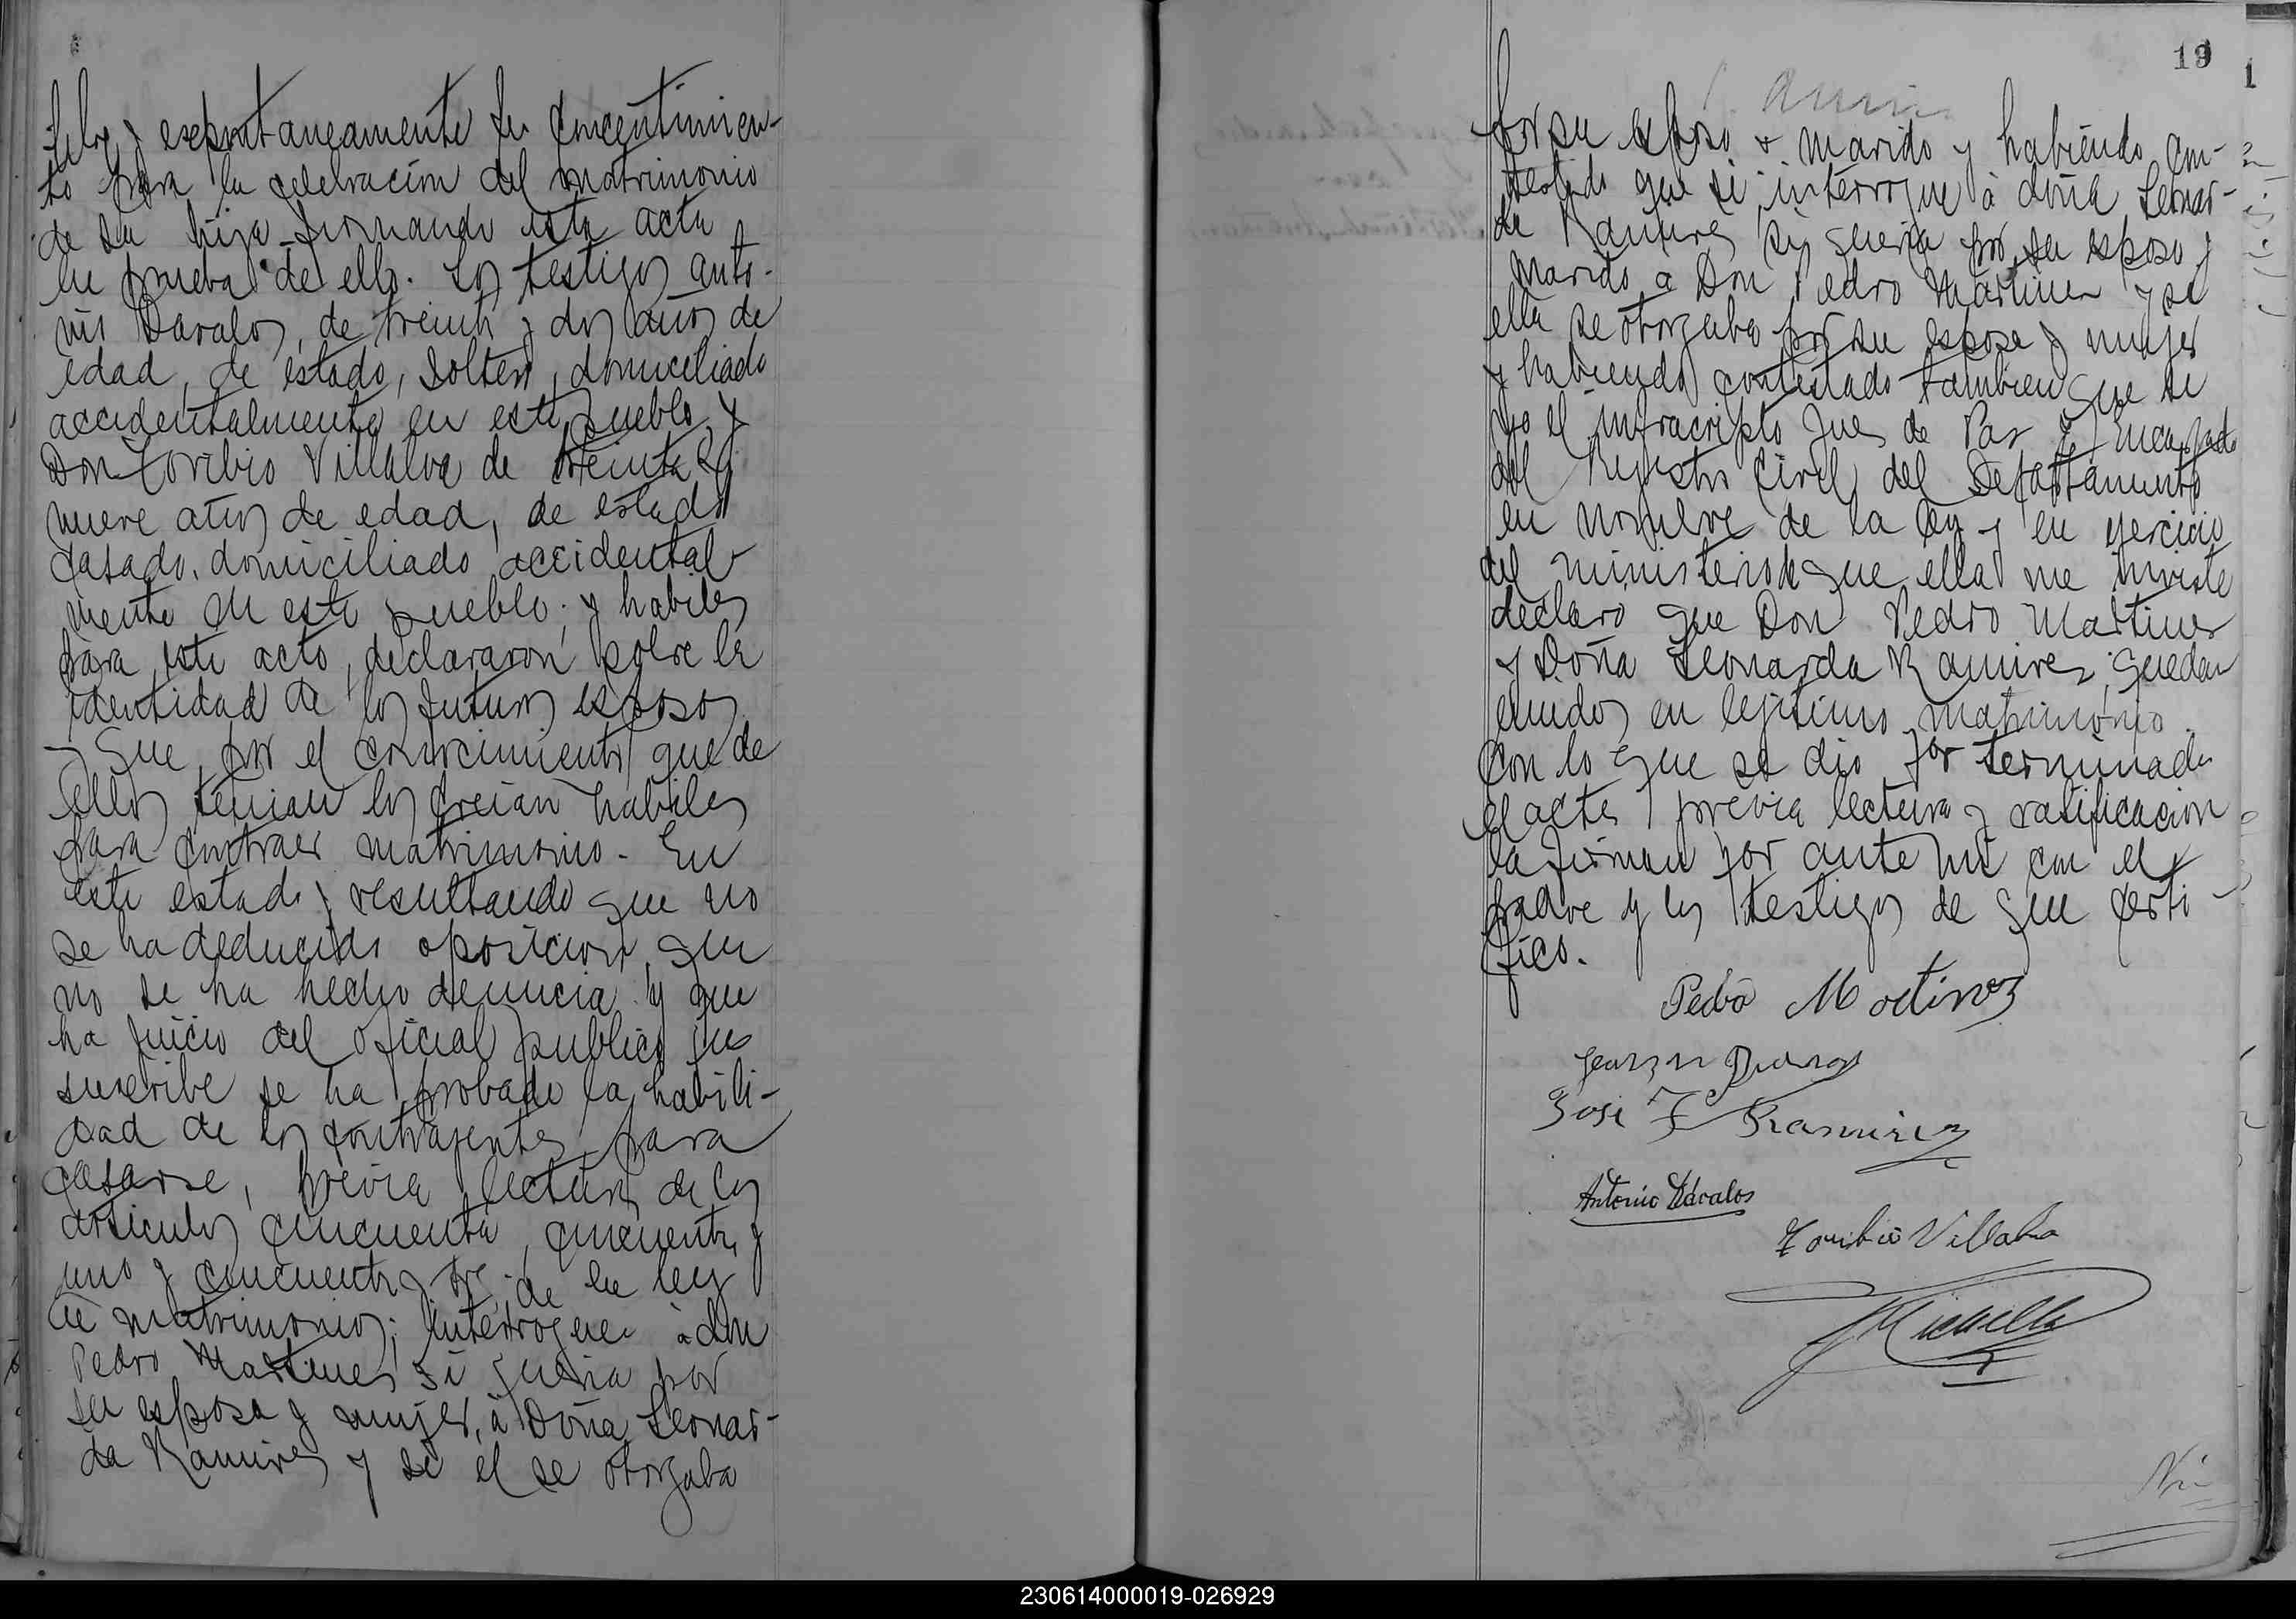 libre y esepontaneamente su concentimien-
to para la celebracion del matrimonio
de su hija firmando esta acta
en prueba de ello. Los testigos anto-
nio Davalos, de treinta y dos años de
edad, de estado, Soltero, domiciliado
accidentalmente en este pueblo, y
Don Toribio Villalva de treinta y
nueve años de edad, de estado
casado, domiciliado accidental-
mente en este pueblo; y habiles
para este acto, declararon sobre la
identidad de los futuros esposos
y que por el conocimiento que de
ellos tenian los creian habiles
para contraer matrimonio. En
este estado y resultando que no
se ha deducido oposicion, que
no se ha hecho denuncia y que
ha juicio del oficial publico que
suscribe se ha probado la habili-
dad de los contrayentes para
casarse, previa lectura de los
articulos cincuenta, cincuenta y
uno y cincuenta y tres de la ley
de matrimonio; interrogue à don
Pedro Martines si queria por
su esposa y mujer, à Doña Leonar-
da Ramires y si el se otorgaba
19
por su esposo y marido y habiendo con-
testado que si interrogue à doña Leonar-
da Ramires si queria por su esposo y
marido à Don Pedro Martinez y si
ella se otorgaba por su esposa y mujer
y habiendo contestado tambien que si
yo el infracripto Jues de Paz y Encargado
del Registro Civil del Departamento
en nombre de la ley y en ejercicio
del ministerio de que ella me inviste
declaro que Don Pedro Martinez
y Doña Leonarda Ramires, quedan
unidos en lejitimo matrimonio.
Con lo que se dio por terminada
el acta, previa lectura y ratificacion
la firman por ante mi con el
padre y los testigos de que certi-
fico.
Pedro Martinez
Jose F Ramirez
Antonio Dávalos
Toribio Villalva